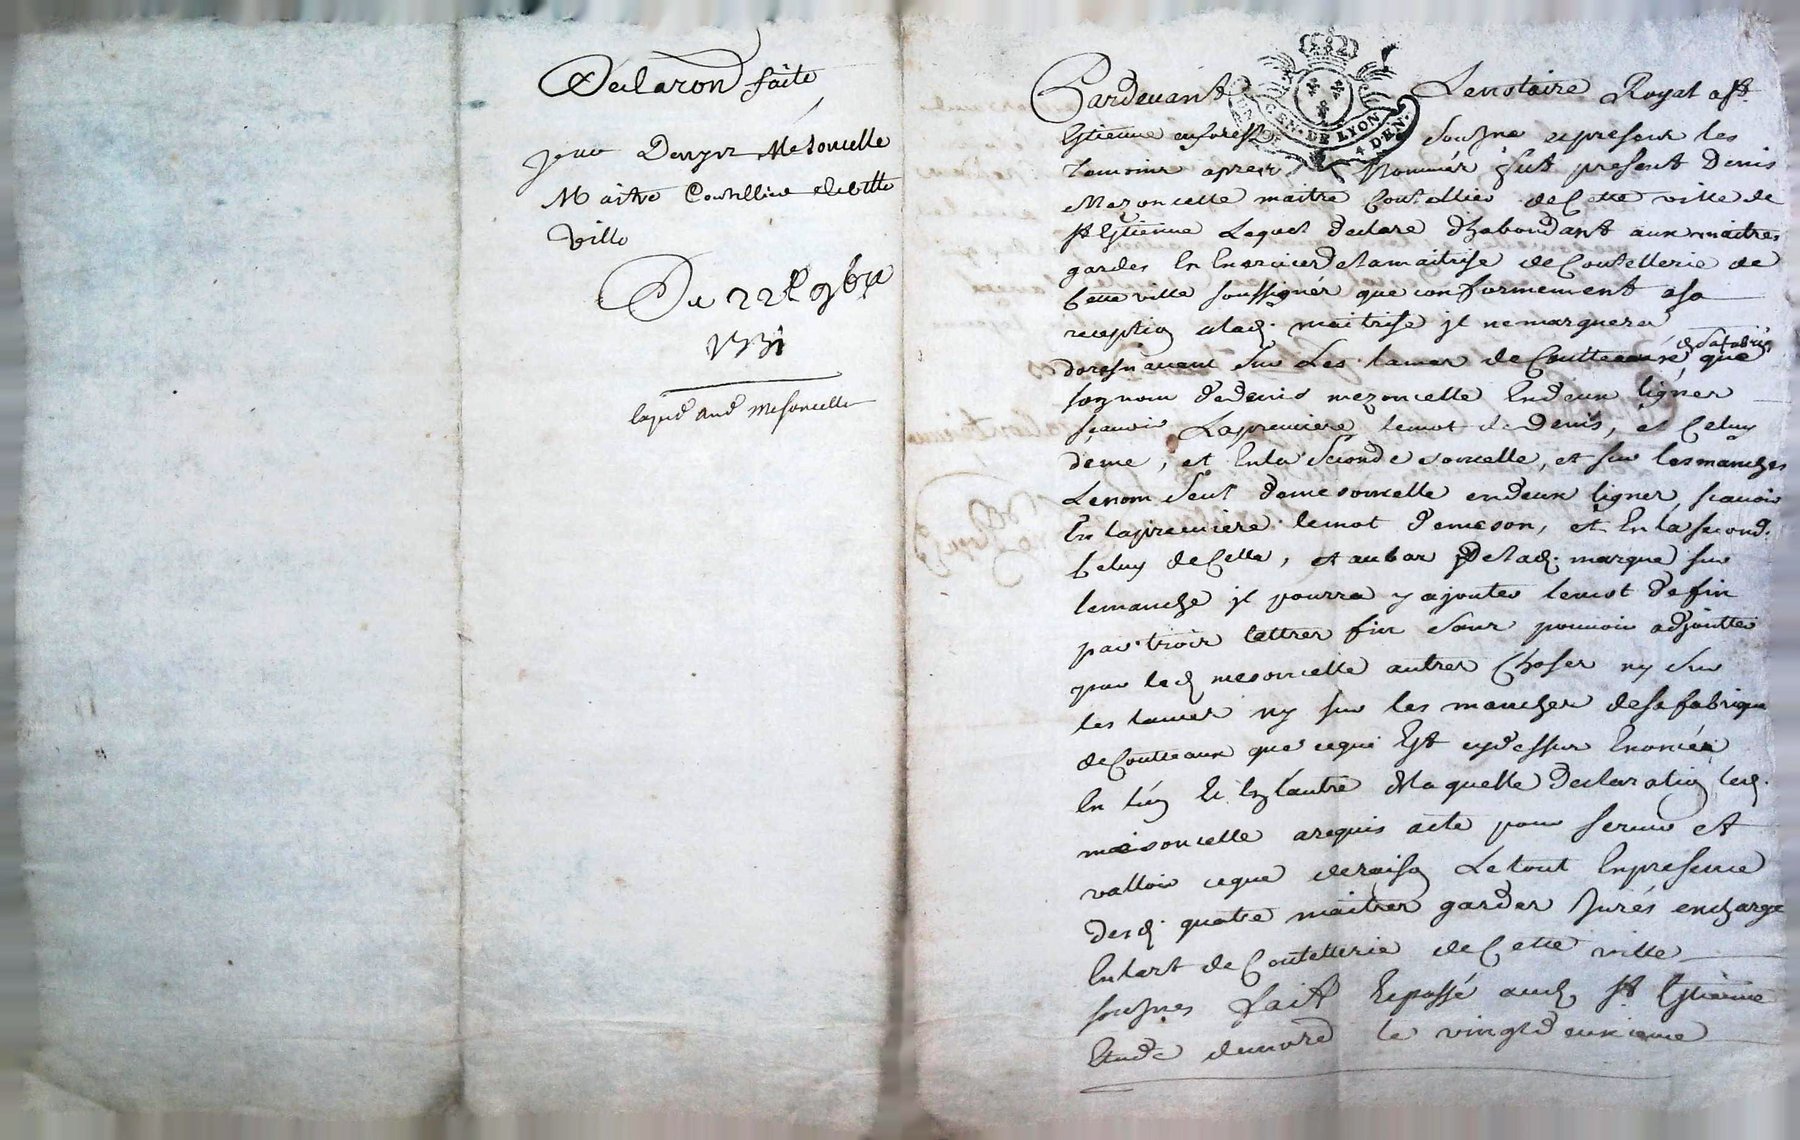 Declaron faite
Jean Denyz Mesoncelle
Maitre Coutellier de cette
Ville
Du 22e 9bre
1731
Mesoncelle
GEN. DE LYON
4 DEN.
Pardevant Le notaire Royal a St
Estienne en forest Soussne et presens les
Temoins apres Nommés fut present Denis
Mezoncelle maitre Coutellier de Cette ville de
St Estienne Lequel declare d'habondant aux maitres
gardes En Exercice de la maitrise de Coutellerie de
Cette ville soussignes que conformement a sa
reception a lad. maitrise jl ne marquera
doresnavant sur Les lames de Coutteaux de sa fabriq que
son nom de denis mezoncelle En deux lignes
sçavoir La premiere le mot de Denis, et Celuy
de me, et En la Seconde soncelle, et sur les manches
Le nom seul de mesoncelle en deux lignes sçavoir
En la premiere le mot de meson, et En la second.
Celuy de Celle, et au bas de lad. marque sur
le manche jl pourra y ajouter le mot de fin
par trois lettres fin sans pouvoir adjoutter
par led mesoncelle autres Choses ny sur
les lames ny sur les manches de sa fabrique
de Coutteaux que ce qui Est cy dessus Enoncée
En l'un Et En l'autre De laquelle declaration led.
maisoncelle a requis acte pour servir et
valloir ce que de raison Le tout En presence
desd. quatre maitres gardes Jurés en charge
En lart de Coutellerie de Cette ville
soussnes Fait Et passé aud. St Estienne
Etude le vingt deuxieme